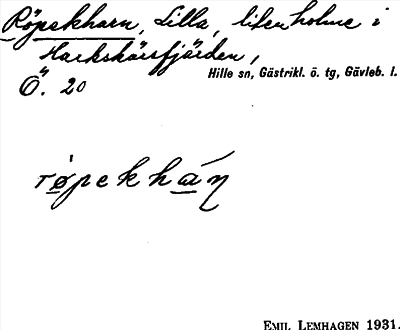 Röpekharn, Lilla, liten holme i
Harkskärsfjärden,
Hille sn, Gästrikl. ö. tg, Gävleb. l.
Ö. 20
EMIL LEMHAGEN 1931.